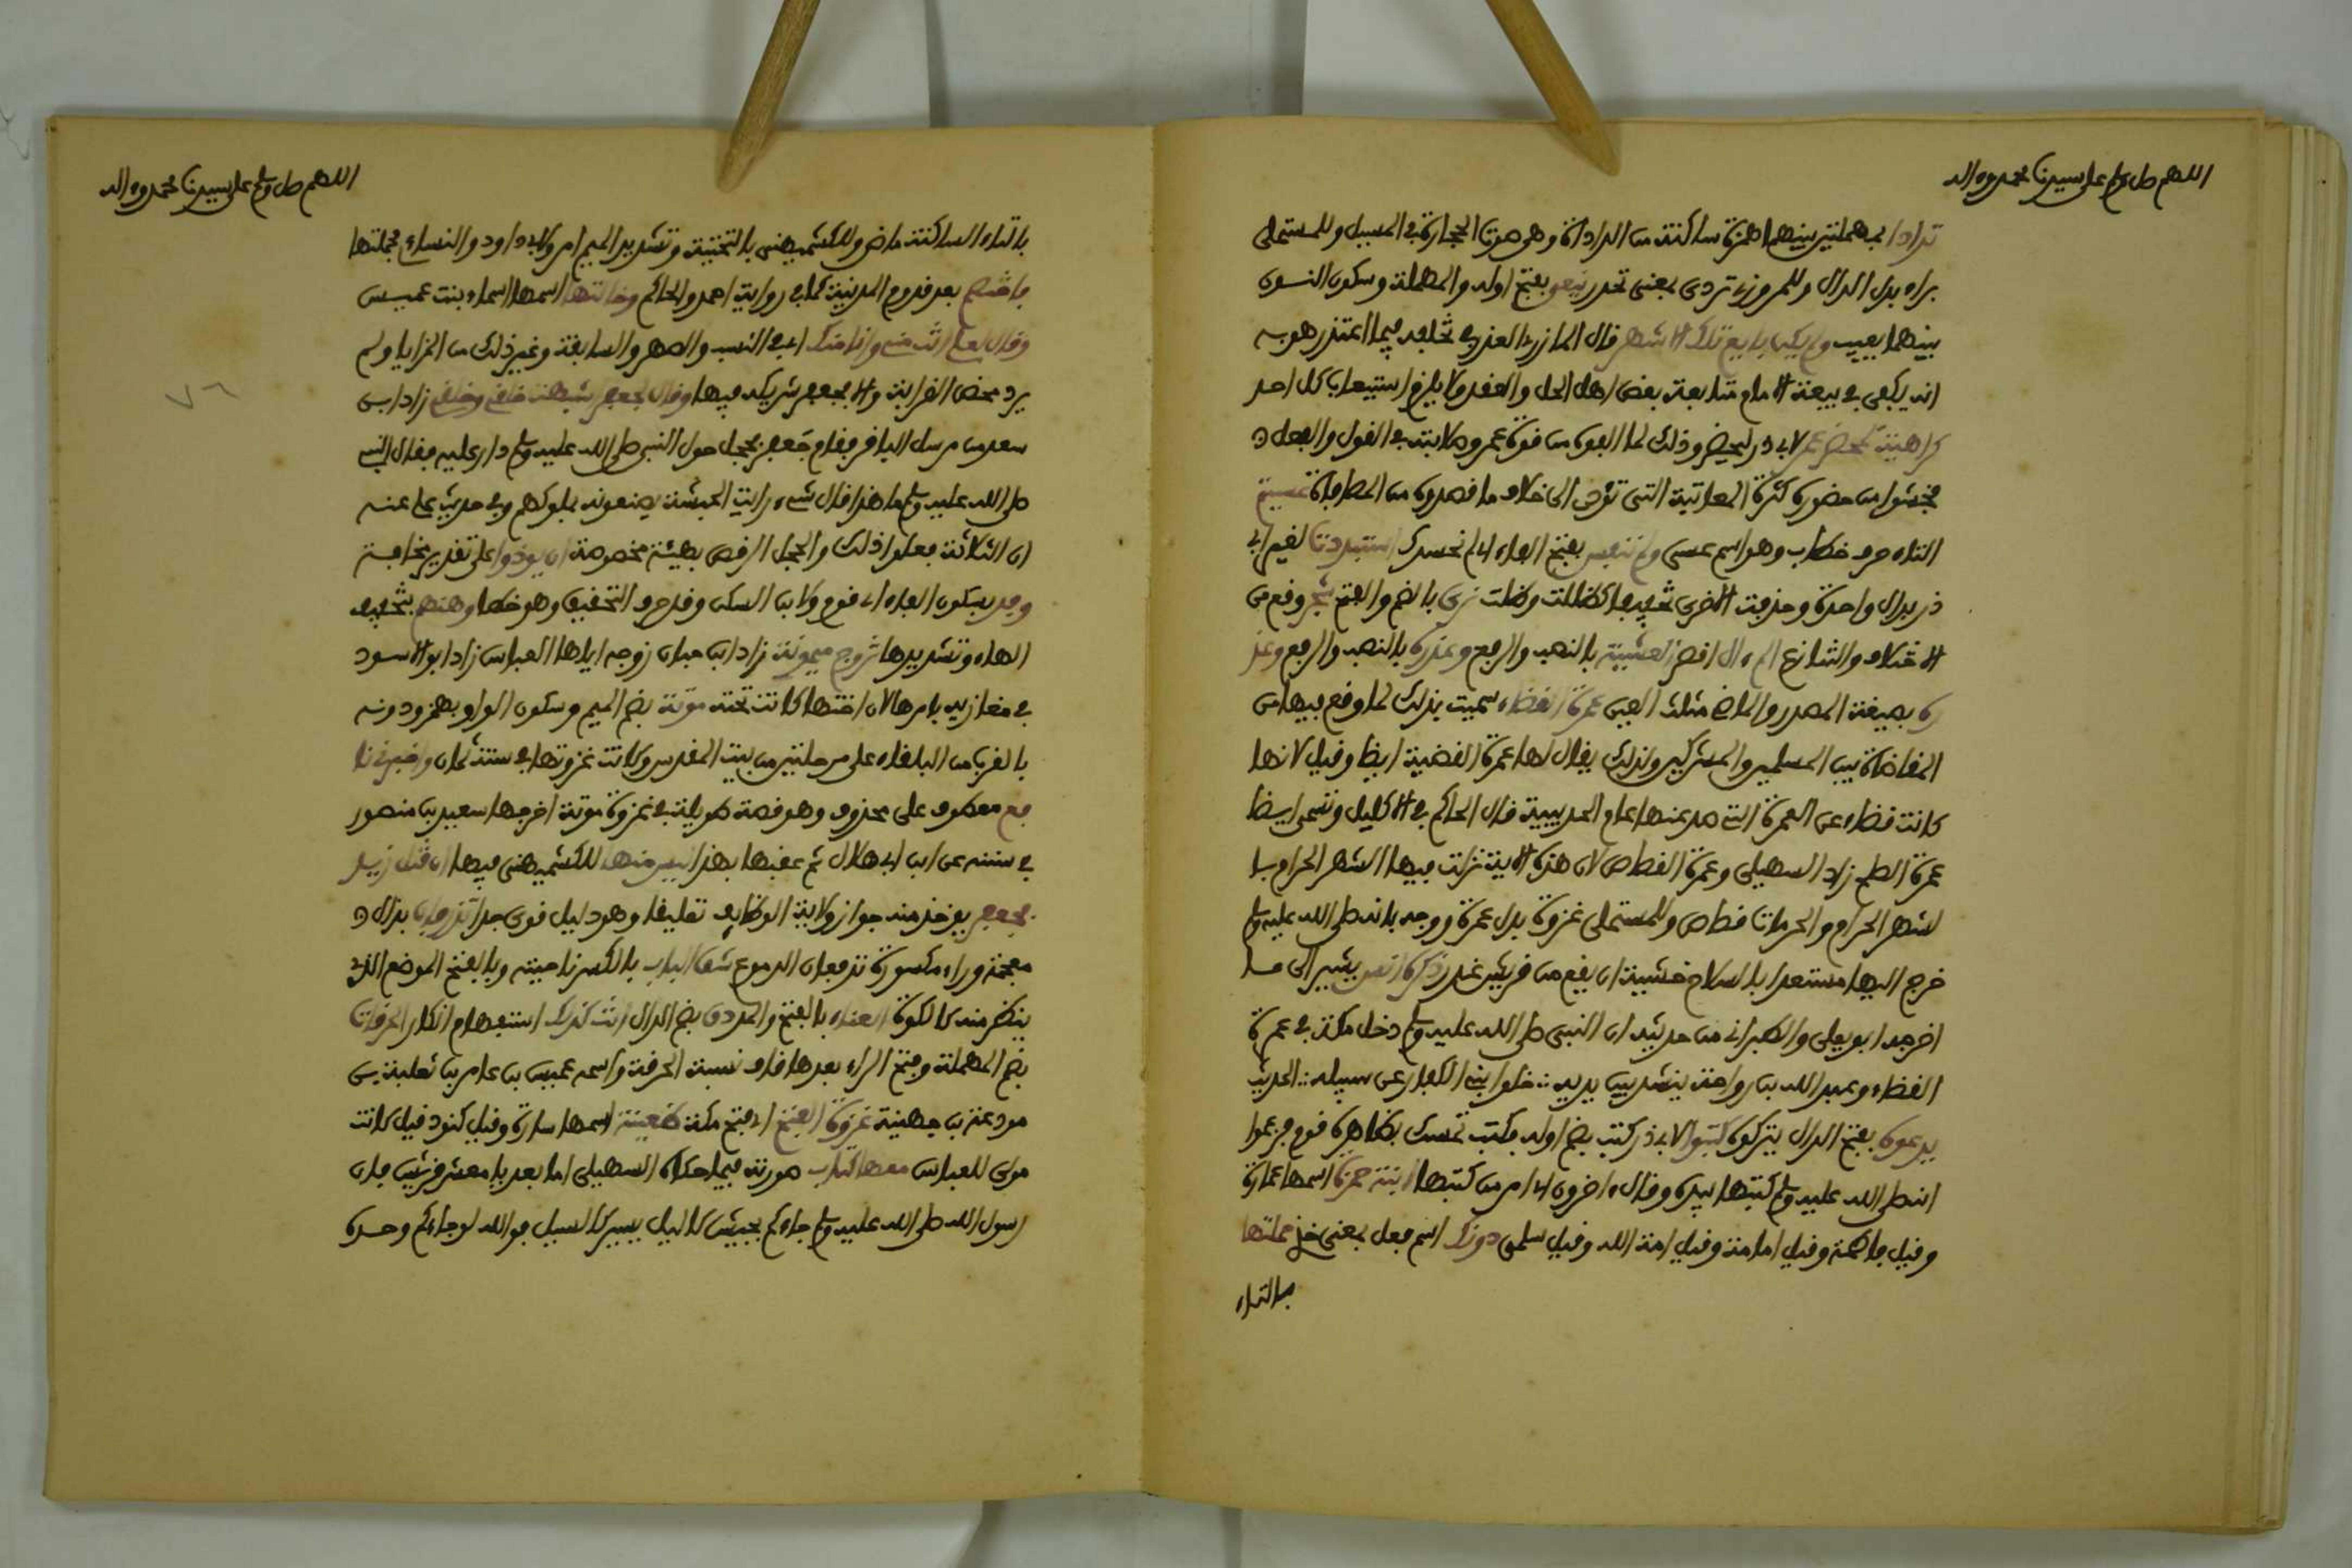 اللهم صل وسلم على سيدنا محمد وءاله
تدادا بمهملتين بينهما همزة ساكنة من الدادأة وهو صوت الحجارة في المسيل وللمستملى
براء بدل الدال وللمروزي تردى بمعنى تحدر ينعى بفتح اوله والمهملة وسكون النون
بينهما يعيب ولم يكن بايع تلك الاشهر قال المازري العذر في تخلفه فيما اعتذر هو به
انه يكفي في بيعة الامام متابعة بعض اهل الحل والعقد ولا يلزم استيعاب كل احد
كراهية لمحضر عمر لابي ذر ليحضر وذلك لما الفوه من قوة عمر وصلابته في القول والفعل
فخشوا من حضوره كثرة المعاتبة التي تؤدى الى خلاف ما قصدوه من المصافاة عسيتم
التاء حرف خطاب وهو اسم عسى ولم ننفس بفتح الفاء اي لم نحسدك استبددت لغير ابي
ذر بدال واحدة وحذفت الاخرى تخفيفا كظللت وظلت نرى بالضم والفتح شجر وقع من
الاختلاف والتنازع لم ءال اقصر العشية بالنصب والرفع وعذره بالنصب والرفع وعذ
ره بصيغة المصدر والماضي مثلث العين عمرة القضاء سميت بذلك لما وقع فيها من
المقاضاة بين المسلمين والمشركين ولذلك يقال لها عمرة القضية ايضا وقيل لانها
كانت قضاء عن العمرة التي صد عنها عام الحديبية قال الحاكم في الاكليل وتسمى ايضا
عمرة الصلح زاد السهيلى وعمرة القصاص لان هذه الاية نزلت فيها الشهر الحرام با
لشهر الحرام والحرمات قصاص وللمستملى غزوة بدل عمرة ووجه بانه صلى الله عليه وسلم
خرج اليها مستعدا بالسلاح خشية ان يقع من قريش غدر ذكره انس يشير الى ما
اخرجه ابو يعلى والطبراني من حديثه ان النبي صلى الله عليه وسلم دخل مكة في عمرة
القضاء وعبد الله بن رواحة ينشد بين يديه ∴ خلوا بني الكفار عن سبيله ∴ الحديث
يدعوه بفتح الدال يتركوه كتبوا لابي ذر كتب بضم اوله فكتب تمسك بظاهره قوم فزعموا
انه صلى الله عليه وسلم كتبها بيده وقال ءاخرون اي امر من كتبها ابنة حمزة اسمها عمارة
وقيل فاطمة وقيل امامة وقيل امة الله وقيل سلمى دونك اسم فعل بمعنى خذ حملتها
بالتاء
اللهم صل وسلم على سيدنا محمد وءاله
بالتاء الساكنة ماض وللكشميهني بالتحتية وتشديد الميم امر ولابي داود والنساءي فحملتها
فاختصم بعد قدوم المدينة كما في رواية احمد والحاكم وخالتها اسمها اسماء بنت عميس
وقال لعلي انت مني وانا منك اي في النسب والصهر والسابقة وغير ذلك من المزايا ولم
يرد محض القرابة والا فجعفر شريكه فيها وقال لجعفر اشبهت خلقي وخلقي زاد ابن
سعد من مرسل الباقر فقام جعفر فحجل حول النبي صلى الله عليه وسلم دار عليه فقال النبي
صلى الله عليه وسلم ما هذا قال شيء رايت الحبشة يصنعونه بملوكهم وفي حديث علي عنه
ان الثلاثة فعلوا ذلك والحجل الرقص بهيئة مخصوصة ان يودوا على تقدير مخافة
وفد بسكون الفاء اي قوم ولابن السكن وقد حرف التحقيق وهو خطا وهنهم بتخفيف
الهاء وتشديدها تزوج ميمونة زاد ابن حبان زوجه اياها العباس زاد ابو الاسود
في مغازيه بامرها لان اختها كانت تحته موتة بضم الميم وسكون الواو بهمز ودونه
بالقرب من البلقاء على مرحلتين من بيت المقدس وكانت غزوتها في سنة ثمان واخبرني نا
فع معطوف على محذوف وهو قصة طويلة في غزوة موتة اخرجها سعيد بن منصور
في سننه عن ابن ابي هلال ثم عقبها بهذا ليس منها للكشميهني فيها ان قتل زيد
فجعفر يوخذ منه جواز ولاية الوظايف تعليقا وهو دليل قوى جدا تذرفان بذال
معجمة وراء مكسورة تدفعان الدموع شق الباب بالكسر ناحيته وبالفتح الموضع الذي
ينظر منه كالكوة العناء بالفتح والمد دق بضم الدال انت كذلك استفهام انكار الحرقات
بضم المهملة وفتح الراء بعدها قاف نسبة الحرقة واسمه عميس بن عامر بن ثعلبة بن
مودعة بن جهينة غزوة الفتح اي فتح مكة ظعينة اسمها سارة وقيل كنود قيل كانت
مولى للعباس معها كتاب صورته فيما حكاه السهيلى اما بعد يا معشر قريش فان
رسول الله صلى الله عليه وسلم جاءكم بجيش كالليل يسير كالسيل فوالله لو جاءكم وحده